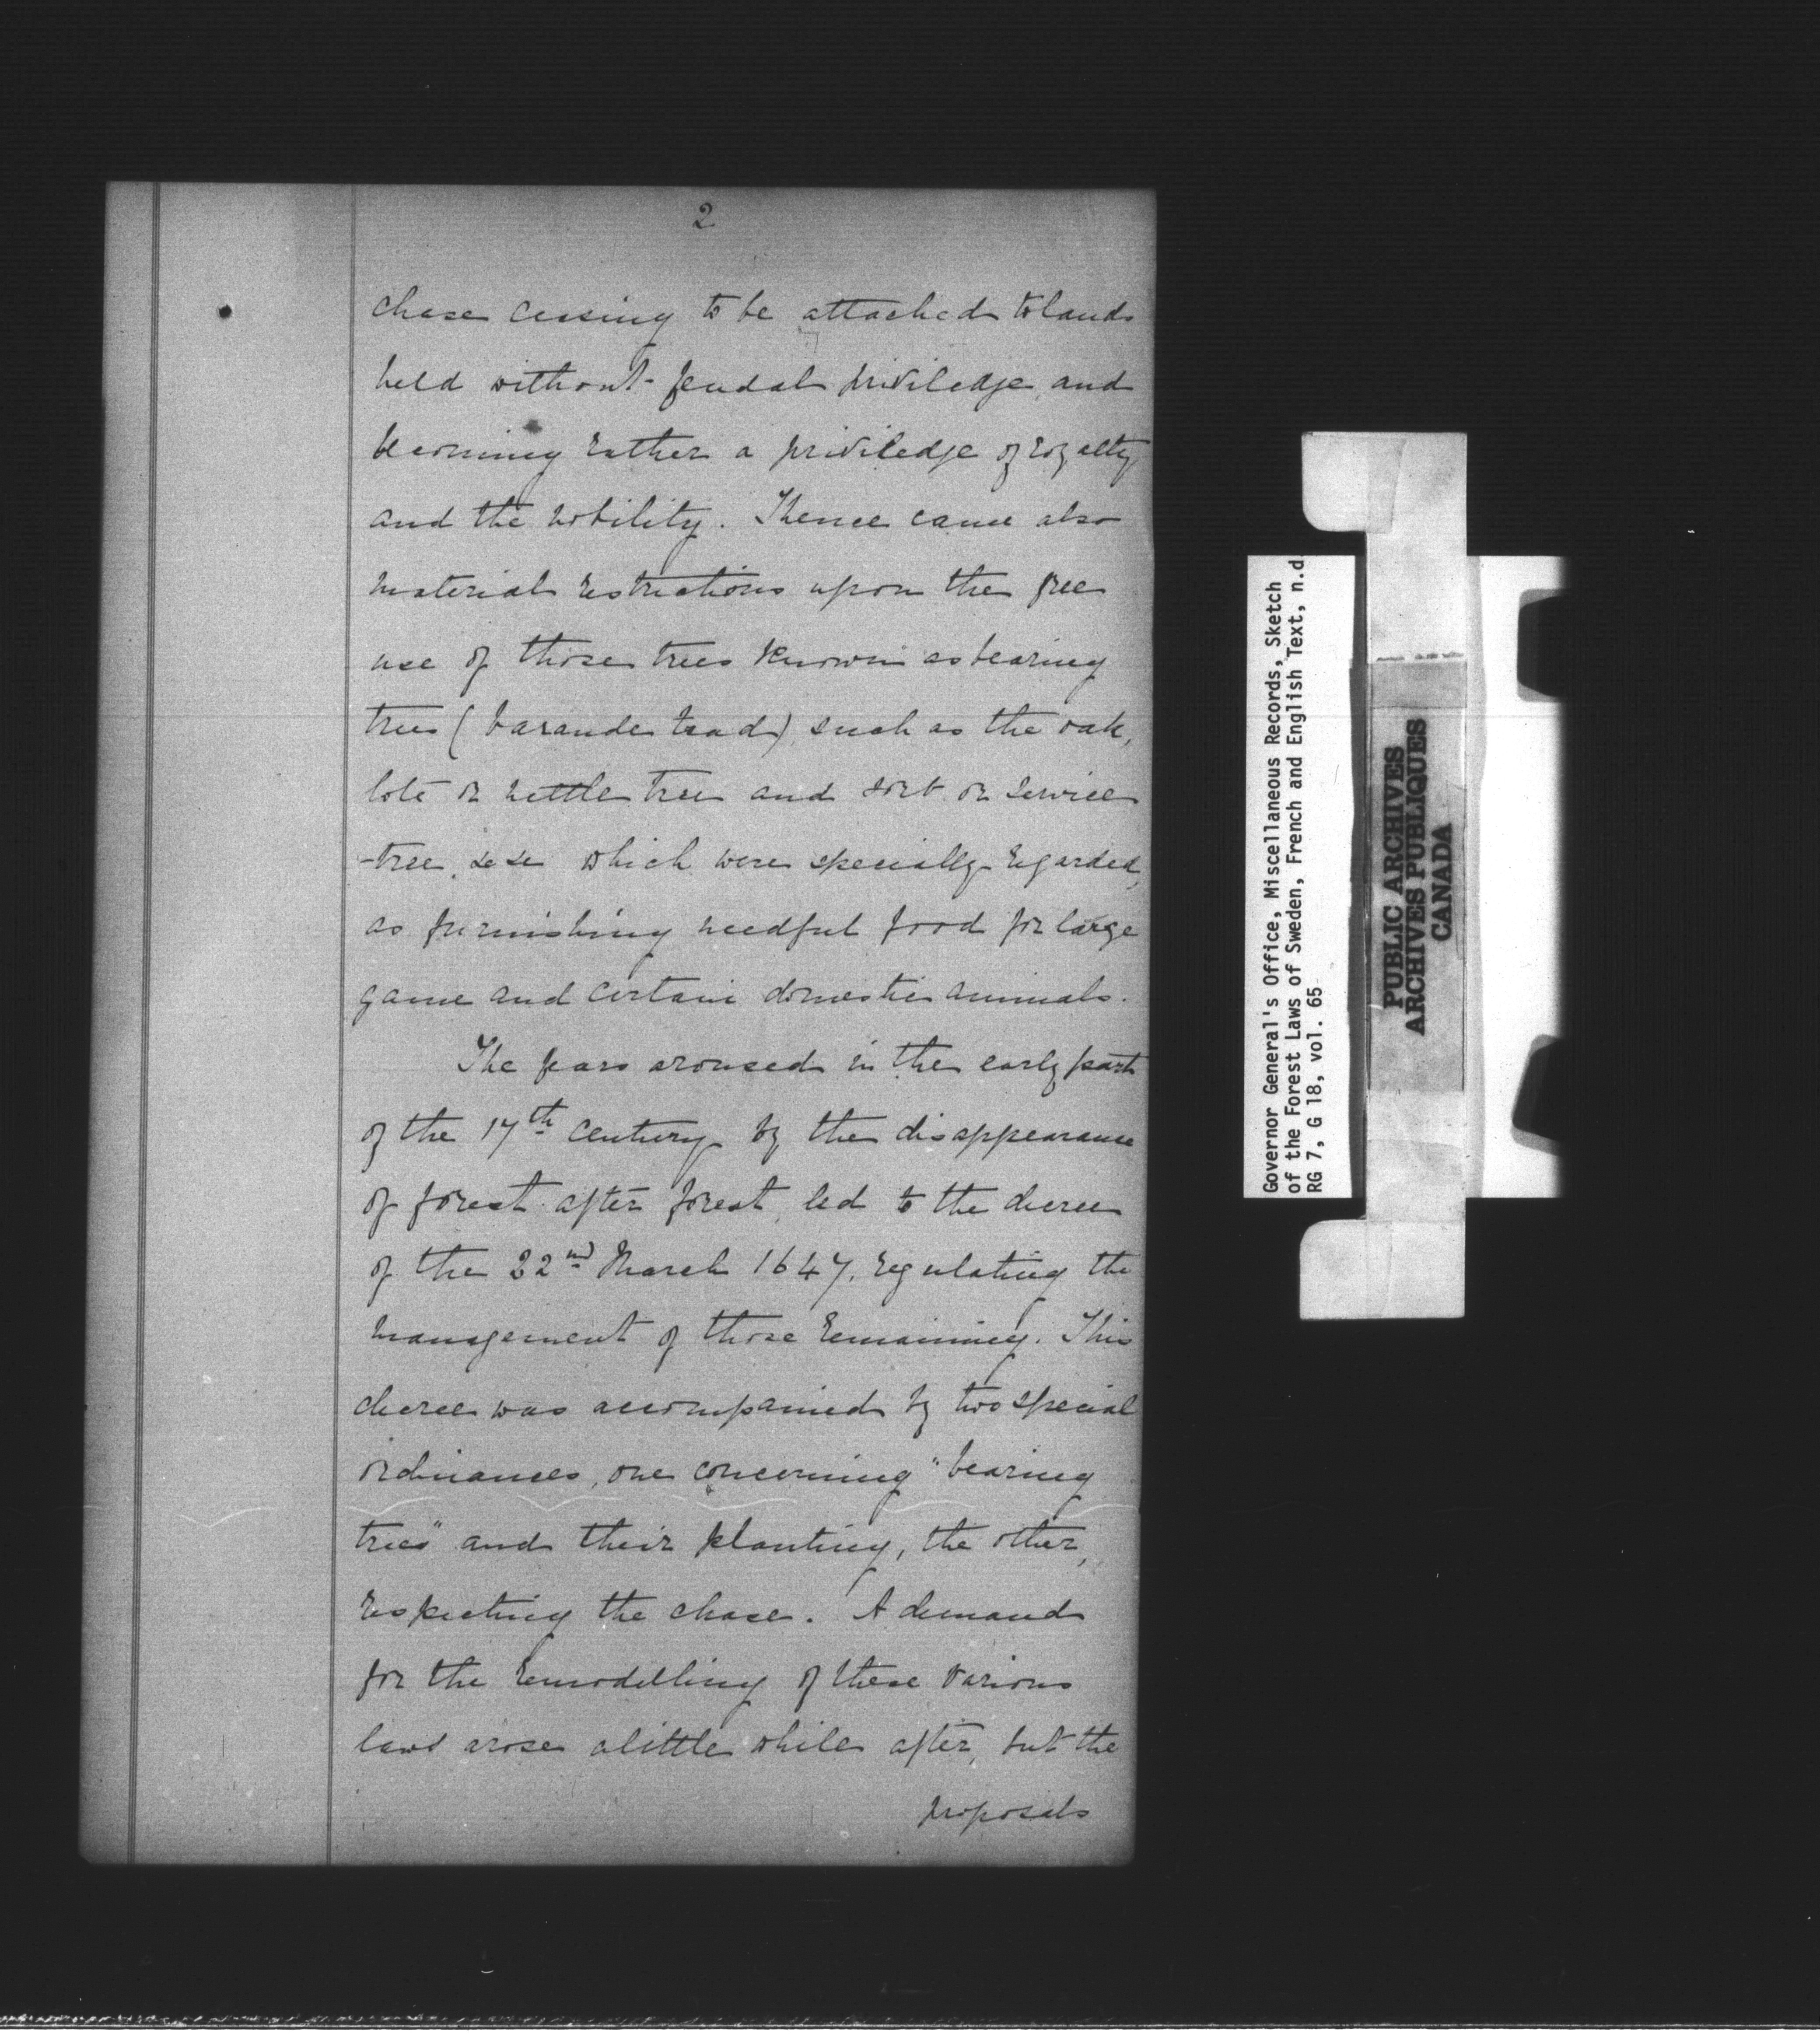 2
chase ceasing to be attached to lands
held without feudal priviledge, and
becoming rather a priviledge of royalty
and the nobility. Thence came also
material restrictions upon the free
use of those trees known as bearing
trees (barande trad) such as the oak,
lote or nettle tree and sorb or service
-tree, &c &c which were specially regarded,
as furnishing needful food for large
game and certain domestic animals.
The fears aroused in the early part
of the 17th century by the disappearance
of forest after forest, led to the decree
of the 22nd March 1647, regulating the
management of those remaining. This
decree was accompanied by two special
ordinances, one concerning "bearing
trees" and their planting, the other,
respecting the chase. A demand
for the remodelling of these various
laws arose a little while after, but the
proposals
Governor General's Office, Miscellaneous Records, Sketch
of the Forest Laws of Sweden, French and English Text, n.d
RG 7, G 18, vol. 65
PUBLIC ARCHIVES
ARCHIVES PUBLIQUES
CANADA